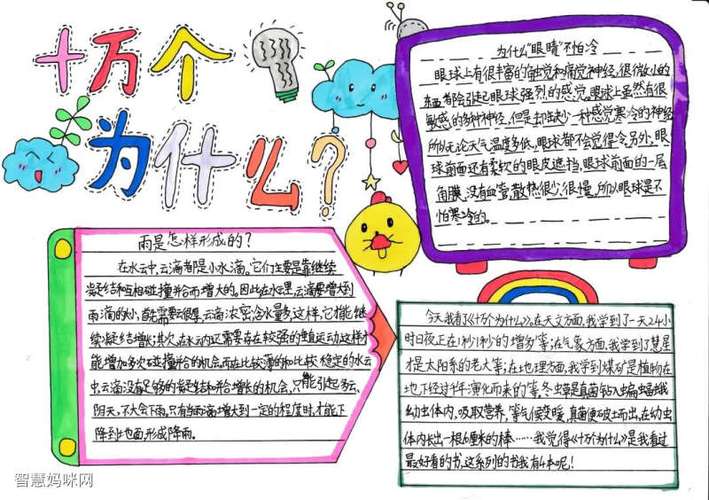 十万个
为什么?
为什么"眼睛"不怕冷
眼球上有很丰富的触觉和痛觉神经,很微小的
东西都会引起眼球强烈的感觉。眼球上虽然有很
敏感的各种神经,但是却缺少一种感觉寒冷的神经
所以无论天气温度多低,眼球都不会觉得冷。另外,眼
球前面还有柔软的眼皮遮挡,眼球前面的一层
角膜,没有血管,散热很少、很慢,所以眼球是不
怕寒冷的。
雨是怎样形成的?
在水云中,云滴都是小水滴。它们主要是靠继续
凝结和互相碰撞并合而增大的。因此在水云里,云滴要增大到
雨滴的大小,首先需要云很厚,云滴浓密,含水量多,这样,它才能继
续凝结增长;其次,在水云内还需要存在较强的垂直运动,这样才
能增加多次碰撞并合的机会。而在比较薄的和比较稳定的水云
中,云滴没有足够的凝结和并合增长的机会,只能引起多云、
阴天,不大会下雨。只有当雨滴增大到一定的程度时,才能下
降到地面,形成降雨。
今天我看了《十万个为什么》。在天文方面,我学到了一天24小
时日夜正在1秒1秒的增多等;在气象方面,我学到了彗星
才是太阳系的老大等;在地理方面,我学到煤矿是植物在
地下经过千年演化而来的等,冬虫草是真菌钻入蝙蝠蛾
幼虫体内,吸取营养,等气候变暖,真菌便破土而出,在幼虫
体内长出一根6厘米的棒……我觉得《十万个为什么》是我看过
最好看的书,这系列的书我有4本呢!
智慧妈咪网